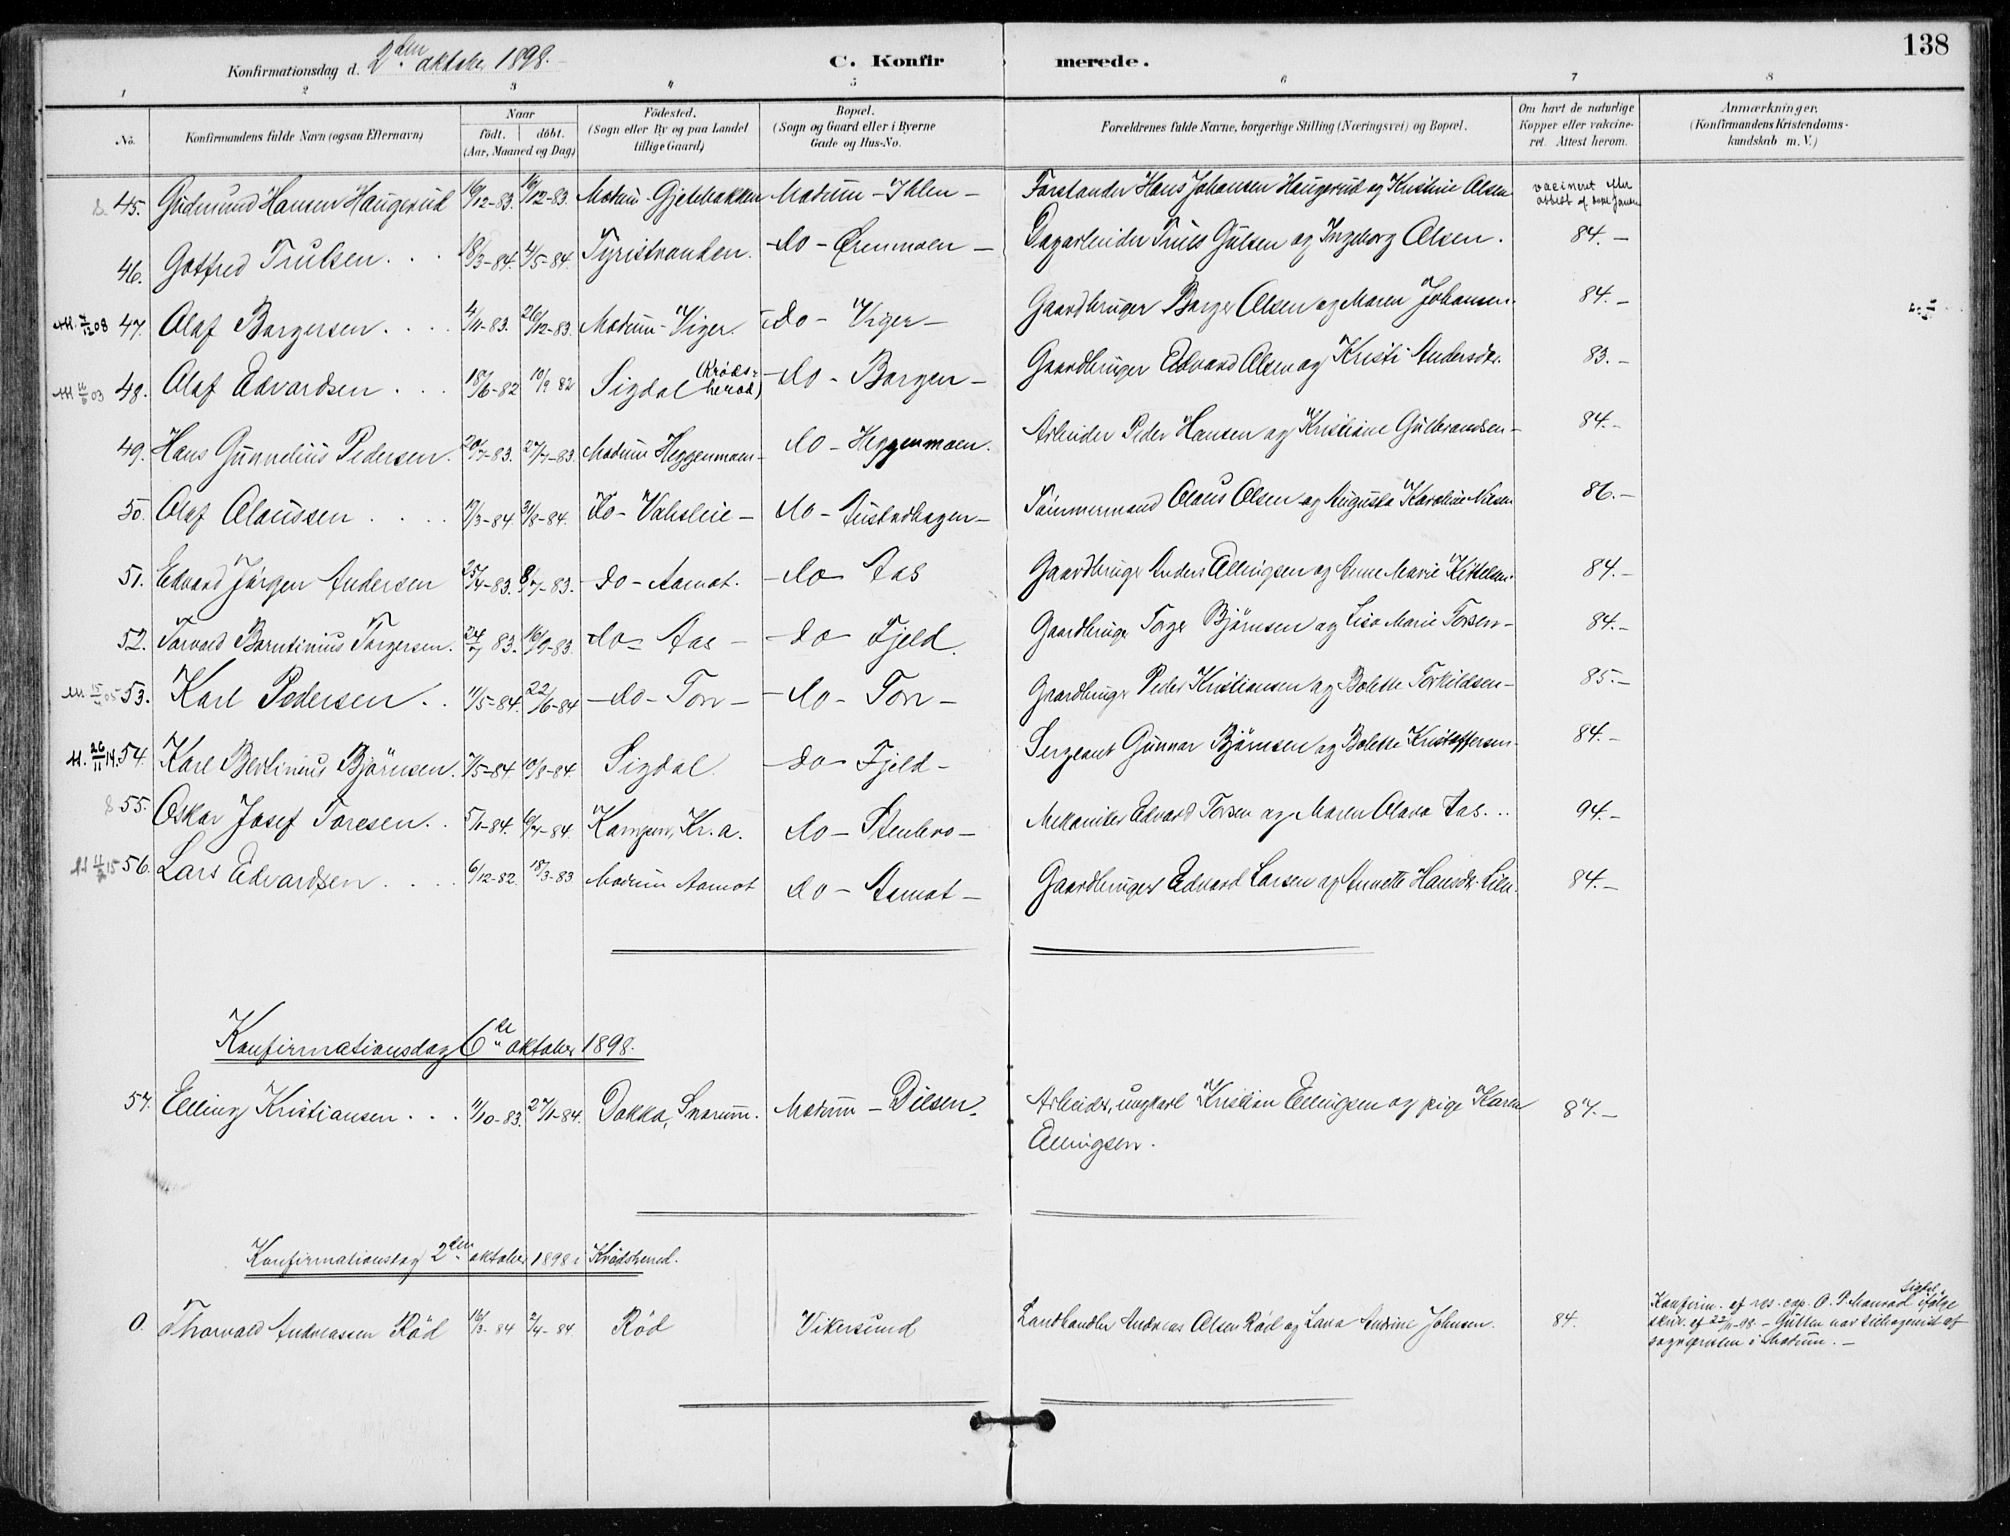 138
Konfirmationsdag d. 2den oktober 1898.
C. Konfirmerede.
1 2 3 4 5 6 7 8
No.
Konfirmandens fulde Navn (ogsaa Efternavn)
Naar
födt. döbt.
(Aar, Maaned og Dag)
Födested.
(Sogn eller By og paa Landet
tillige Gaard)
Bopæl.
(Sogn og Gaard eller i Byerne
Gade og Hus-No.
Forældrenes fulde Navne, borgerlige Stilling (Næringsvei) og Bopæl.
Om havt de naturlige
Kopper eller vakcine-
ret. Attest herom.
Anmærkninger.
(Konfirmandens Kristendoms-
kundskab m. V.)
45. Gudmund Hansen Haugerud 16/12-83. Modum - Gjetebakken Modum - Ihlen - Forstander Hans Johansen Haugerud og Kristine Olsen vacineret efter
46. Gotfred Trulsen. . . 18/3-84. 4/5-84. Tyristranden. - do - Örenmoen - Dagarbeider Truls Gulsen og Ingeborg Olsen. 84. -
47. Olaf Borgersen . . . . 4/11-83. 26/12-83. Modum - Viger. - do - Viger - Gaardbruger Borger Olsen og Maren Johansen. 84. -
48. Olaf Edvardsen . . . 18/6-82 10/9 82 Sigdal (Kröds-herod) - do - Borgen - Gaardbruger Edvard Olsen og Kristi Andersdr. 83. -
49. Hans Gunnelius Pedersen. 20/7-83. 27/7-83 Modum Heggenmoen - do - Heggenmoen. Arbeider Peder Hansen og Kristiane Gulbrandsen - 84. -
50. Olaf Olaussen . . . . 17/3-84 31/8-84. do - Vahsleie - do - Austadhagen - Tömmermand Olaus Olsen og Augusta Karoline Nilsen 86. -
51. Edvard Jörgen Andersen 25/4-83. 8/7-83. - do - Aamot. - do - Aas Gaardbruger Anders Ellingsen og Anne Marie Kittelsen. 84. -
52. Torvald Berntinius Torgersen. 24/7 83. 16/9-83. - do - Aas - - do - Fjeld. Gaardbruger Torger Björnsen og Lisa Marie Torsen - 84. -
53. Karl Pedersen . . 11/5-84. 22/6-84 - do - Torr - - do - Torr - Gaardbruger Peder Kristiansen og Bolette Torkildsen - 85. -
M. 26/11 14. 54. Karl Bertinius Björnsen. 7/5-84. 10/8-84. Sigdal. - do - Fjeld - Sergeant Gunnar Björnsen og Bolette Kristoffersen. 84. -
55. Oskar Josef Toresen. . 5/1-84. 6/7-84. Kampen, Kr.a. - do - Stenbro - Mekaniker Edvard Torsen og Maren Olava Aas. . . 94. -
56. Lars Edvardsen . . . . 6/12-82. 18/3-83 Modum Aamot - do - Aamot - Gaardbruger Edvard Larsen og Annette Hansdr. Lien. 84. -
Konfirmationsdag 6te oktober 1898.
57. Elling Kristiansen . . . 11/10-83. 27/1-84. Dokka, Snarum. Modum - Dilsen. Arbeider, ungkarl Kristian Ellingsen og pige Karen 87. -
Ellingsen.
Konfirmationsdag 2den oktober 1898 i Krödsherred.
0. Thorvald Andreassen Röd 16/3-84 7/4-84. Röd Vikersund Landhandler Andreas Olsen Röd og Lava Andrine Johnsen. 84.
Konfirm. af res. cap. O. P. Monrad Sigdal ifölge
skriv. af 22/11-98. - Gutten var
sognepresten i Modum. -